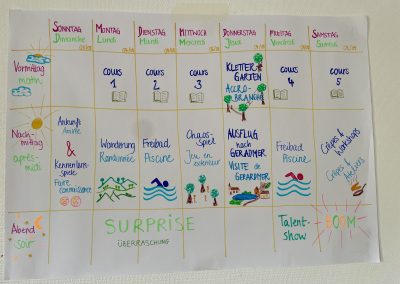 SONNTAG
Dimanche
MONTAG
Lundi
DIENSTAG
Mardi
MITTWOCH
Mercredi
DONNERSTAG
Jeudi
FREITAG
Vendredi
SAMSTAG
Samedi
Vormittag
matin
cours
1
cours
2
cours
3
KLETTER
GARTEN
ACCRO-
BRANCHE
cours
4
cours
5
Nach-
mittag
après-
midi
Ankunft
Arrivée
&
Kennenlern-
spiele
Faire
connaissance
Wanderung
Randonnée
Freibad
Piscine
Chaos-
Spiel
Jeu en
extérieur
AUSFLUG
nach
GERADMER
VISITE de
GERARDMER
Freibad
Piscine
Crêpes &
Workshops
Crêpes &
Ateliers
Abend
Soir
SURPRISE
ÜBERRASCHUNG
Talent-
show
BOOM